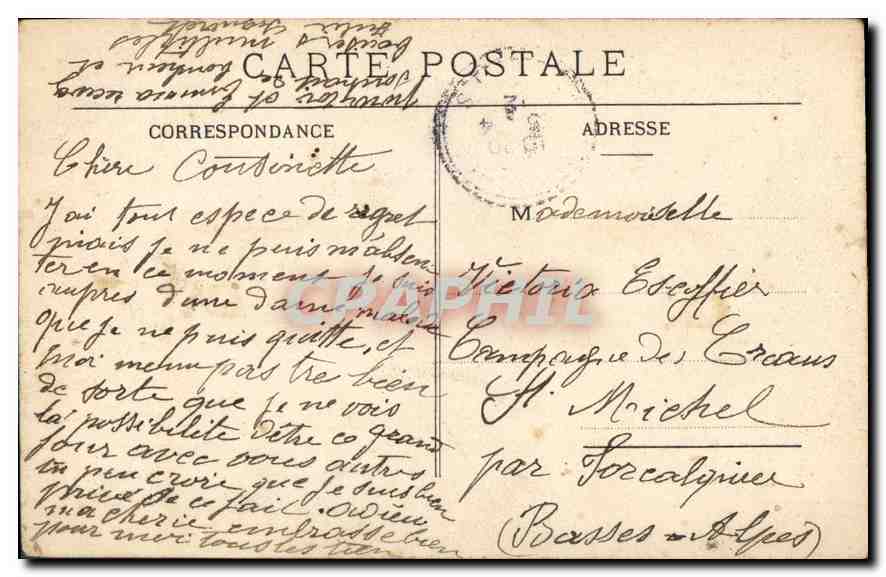 CARTE POSTALE
CORRESPONDANCE
Chère Cousinette
J'ai tout espece de regret
mais je ne puis m'absen
ter en ce moment je suis
aupres d'une dame malade
que je ne puis quitte, et
moi meme pas tre bien
de sorte que je ne vois
la possibilite d'être ce grand
jour avec vous autres
tu peu croire que je suis bien
privé de ce fait. adieu
ma cherie embrasse bien
pour moi tous les tien
bonheur et
baisers multiples
ADRESSE
Mademoiselle
Victoria Escoffier
Campagne des Craaus
St. Michel
par Forcalquier
(Basses-Alpes)
CPAPHIL